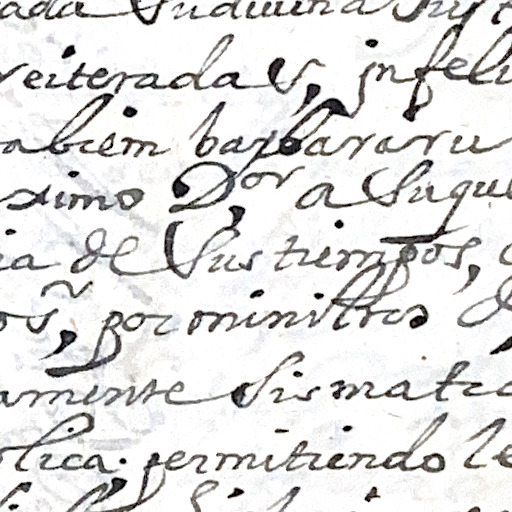 ada Sudiuina
reiteradas, infeli
bien barbara ru
ximo D,or a Suque
ia de Sus tiempos,
os, por ministros d
amente Sismatic
lica. permitiendo le